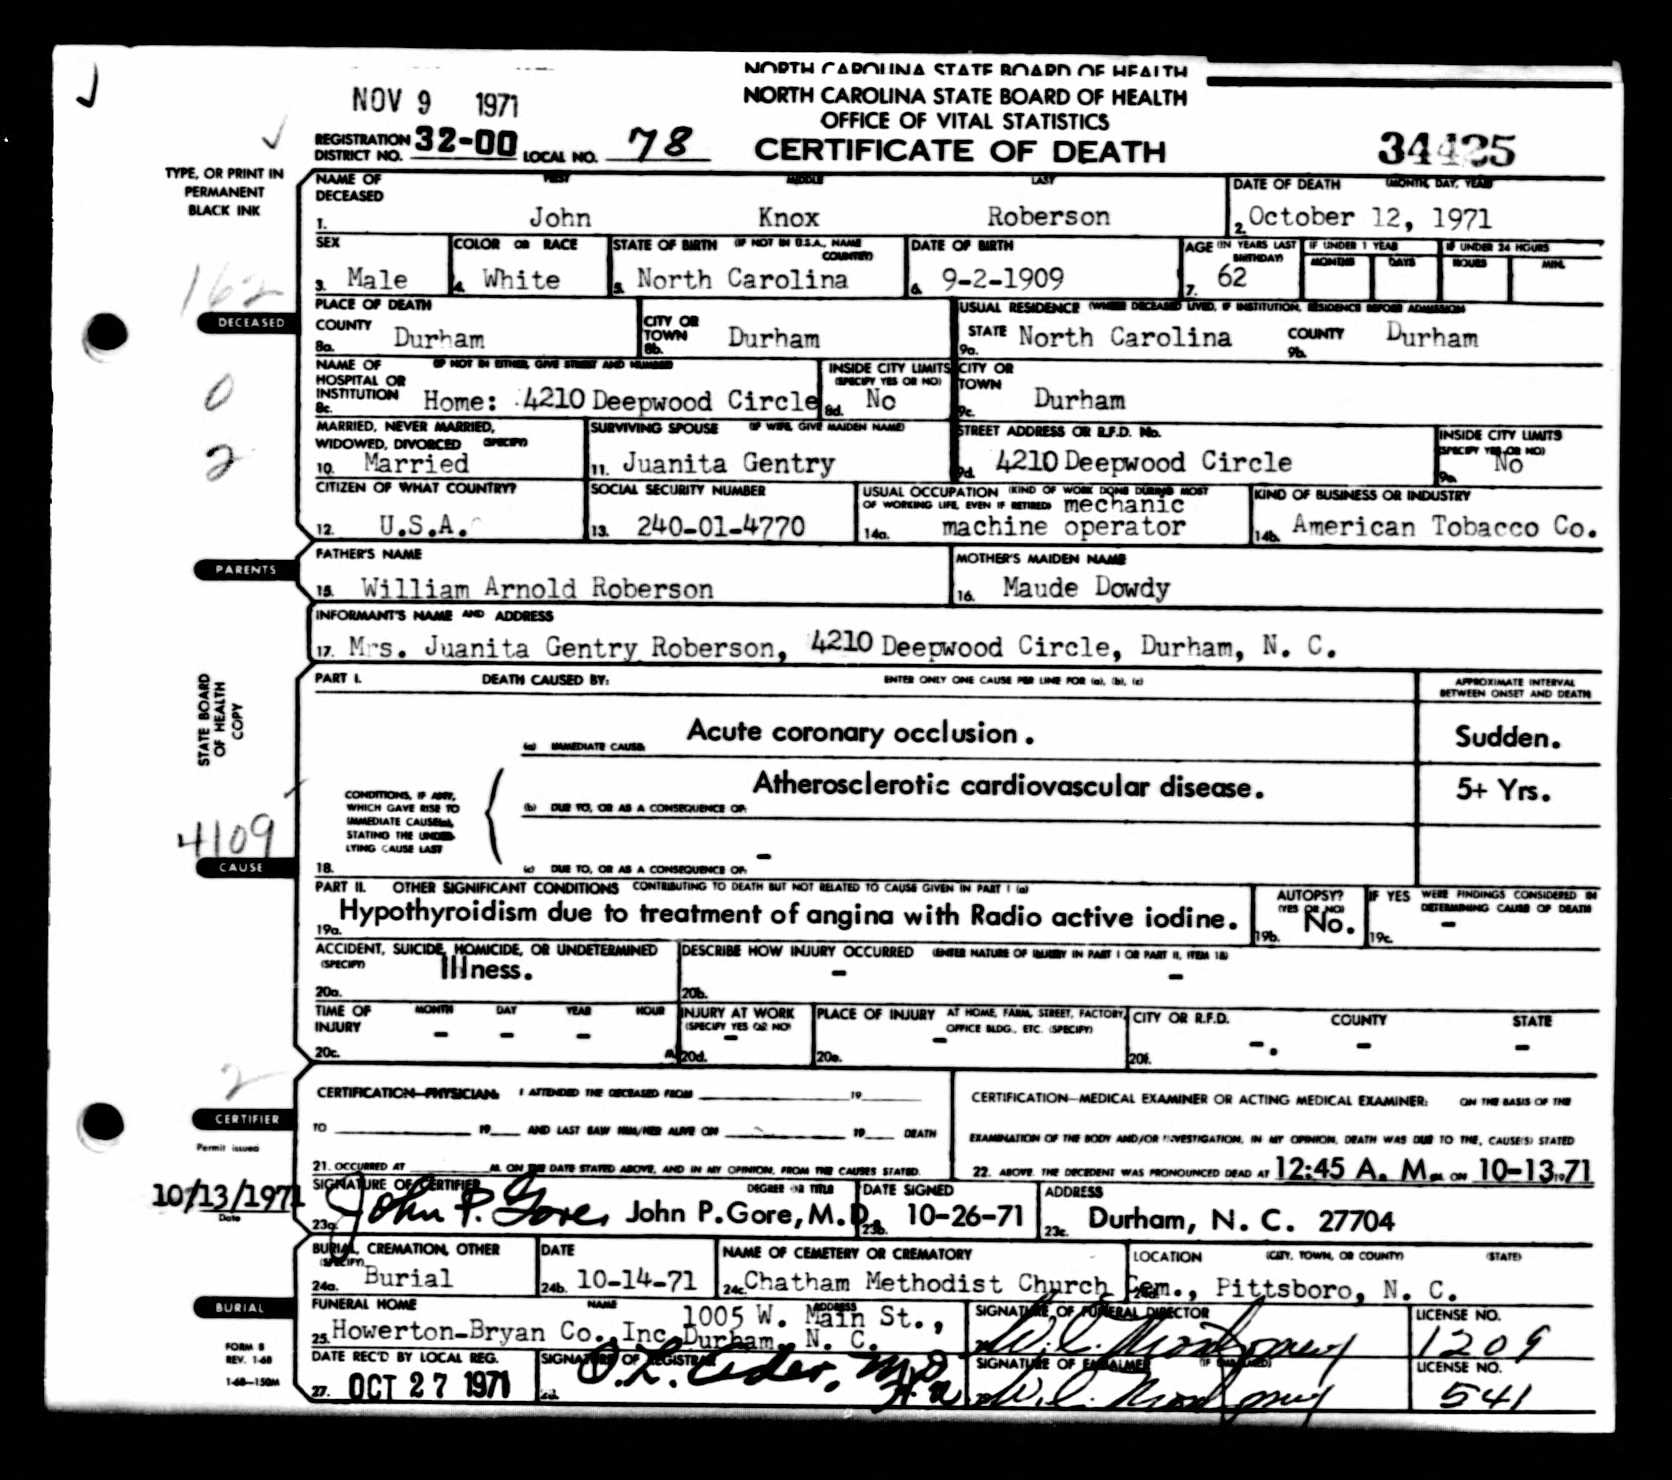 NORTH CAROLINA STATE BOARD OF HEALTH
NOV 9 1971
NORTH CAROLINA STATE BOARD OF HEALTH
OFFICE OF VITAL STATISTICS
REGISTRATION DISTRICT NO. 32-00 LOCAL NO. 78 CERTIFICATE OF DEATH 34425
TYPE, OR PRINT IN
PERMANENT
BLACK INK
NAME OF DECEASED FIRST MIDDLE LAST DATE OF DEATH (MONTH, DAY, YEAR)
1. John Knox Roberson 2. October 12, 1971
SEX COLOR OR RACE STATE OF BIRTH (IF NOT IN U.S.A., NAME COUNTRY) DATE OF BIRTH AGE (IN YEARS LAST BIRTHDAY) IF UNDER 1 YEAR IF UNDER 24 HOURS
MONTHS DAYS HOURS MIN.
3. Male 4. White 5. North Carolina 6. 9-2-1909 7. 62
162
DECEASED
PLACE OF DEATH USUAL RESIDENCE (WHERE DECEASED LIVED, IF INSTITUTION, RESIDENCE BEFORE ADMISSION)
COUNTY 8a. Durham CITY OR TOWN 8b. Durham STATE 9a. North Carolina COUNTY 9b. Durham
NAME OF HOSPITAL OR INSTITUTION (IF NOT IN EITHER, GIVE STREET AND NUMBER) INSIDE CITY LIMITS (SPECIFY YES OR NO) CITY OR TOWN
0
8c. Home: 4210 Deepwood Circle 8d. No 9c. Durham
MARRIED, NEVER MARRIED, WIDOWED, DIVORCED (SPECIFY) SURVIVING SPOUSE (IF WIFE, GIVE MAIDEN NAME) STREET ADDRESS OR R.F.D. No. INSIDE CITY LIMITS (SPECIFY YES OR NO)
2
10. Married 11. Juanita Gentry 9d. 4210 Deepwood Circle 9e. No
CITIZEN OF WHAT COUNTRY? SOCIAL SECURITY NUMBER USUAL OCCUPATION (KIND OF WORK DONE DURING MOST OF WORKING LIFE, EVEN IF RETIRED) KIND OF BUSINESS OR INDUSTRY
mechanic
12. U.S.A. 13. 240-01-4770 14a. machine operator 14b. American Tobacco Co.
PARENTS
FATHER'S NAME MOTHER'S MAIDEN NAME
15. William Arnold Roberson 16. Maude Dowdy
INFORMANT'S NAME AND ADDRESS
17. Mrs. Juanita Gentry Roberson, 4210 Deepwood Circle, Durham, N. C.
STATE BOARD
OF HEALTH
COPY
PART I. DEATH CAUSED BY: ENTER ONLY ONE CAUSE PER LINE FOR (a), (b), (c) APPROXIMATE INTERVAL BETWEEN ONSET AND DEATH
(a) IMMEDIATE CAUSE: Acute coronary occlusion. Sudden.
CONDITIONS, IF ANY,
WHICH GAVE RISE TO
IMMEDIATE CAUSE(a),
STATING THE UNDER-
LYING CAUSE LAST
(b) DUE TO, OR AS A CONSEQUENCE OF: Atherosclerotic cardiovascular disease. 5+ Yrs.
4109
CAUSE
18. (c) DUE TO, OR AS A CONSEQUENCE OF: -
PART II. OTHER SIGNIFICANT CONDITIONS CONTRIBUTING TO DEATH BUT NOT RELATED TO CAUSE GIVEN IN PART I (a) AUTOPSY? (YES OR NO) IF YES WERE FINDINGS CONSIDERED IN DETERMINING CAUSE OF DEATH
19a. Hypothyroidism due to treatment of angina with Radio active iodine. 19b. No. 19c. -
ACCIDENT, SUICIDE, HOMICIDE, OR UNDETERMINED (SPECIFY) DESCRIBE HOW INJURY OCCURRED (ENTER NATURE OF INJURY IN PART I OR PART II, ITEM 18)
20a. Illness. 20b. - -
TIME OF INJURY MONTH DAY YEAR HOUR INJURY AT WORK (SPECIFY YES OR NO) PLACE OF INJURY AT HOME, FARM, STREET, FACTORY, OFFICE BLDG., ETC. (SPECIFY) CITY OR R.F.D. COUNTY STATE
20c. - - - M. 20d. - 20e. - 20f. -. - -
2
CERTIFIER
CERTIFICATION—PHYSICIAN: I ATTENDED THE DECEASED FROM 19
TO 19 AND LAST SAW HIM/HER ALIVE ON 19 DEATH
21. OCCURRED AT M. ON THE DATE STATED ABOVE, AND IN MY OPINION, FROM THE CAUSES STATED.
CERTIFICATION—MEDICAL EXAMINER OR ACTING MEDICAL EXAMINER: ON THE BASIS OF THE
EXAMINATION OF THE BODY AND/OR INVESTIGATION, IN MY OPINION, DEATH WAS DUE TO THE, CAUSE(S) STATED
22. ABOVE. THE DECEDENT WAS PRONOUNCED DEAD AT 12:45 A. M. ON 10-13 19 71
Permit issued
10/13/1971
Date
SIGNATURE OF CERTIFIER DEGREE OR TITLE DATE SIGNED ADDRESS
23a. John P. Gore, John P.Gore, M.D. 23b. 10-26-71 23c. Durham, N. C. 27704
BURIAL, CREMATION, OTHER (SPECIFY) DATE NAME OF CEMETERY OR CREMATORY LOCATION (CITY, TOWN, OR COUNTY) (STATE)
24a. Burial 24b. 10-14-71 24c. Chatham Methodist Church Cem., 24d. Pittsboro, N. C.
BURIAL
FUNERAL HOME NAME ADDRESS SIGNATURE OF FUNERAL DIRECTOR LICENSE NO.
1005 W. Main St.,
25. Howerton-Bryan Co. Inc Durham, N. C. 1209
FORM 8
REV. 1-68
1-68-150M
DATE REC'D BY LOCAL REG. SIGNATURE OF REGISTRAR SIGNATURE OF EMBALMER (IF EMBALMED) LICENSE NO.
27. OCT 27 1971 541